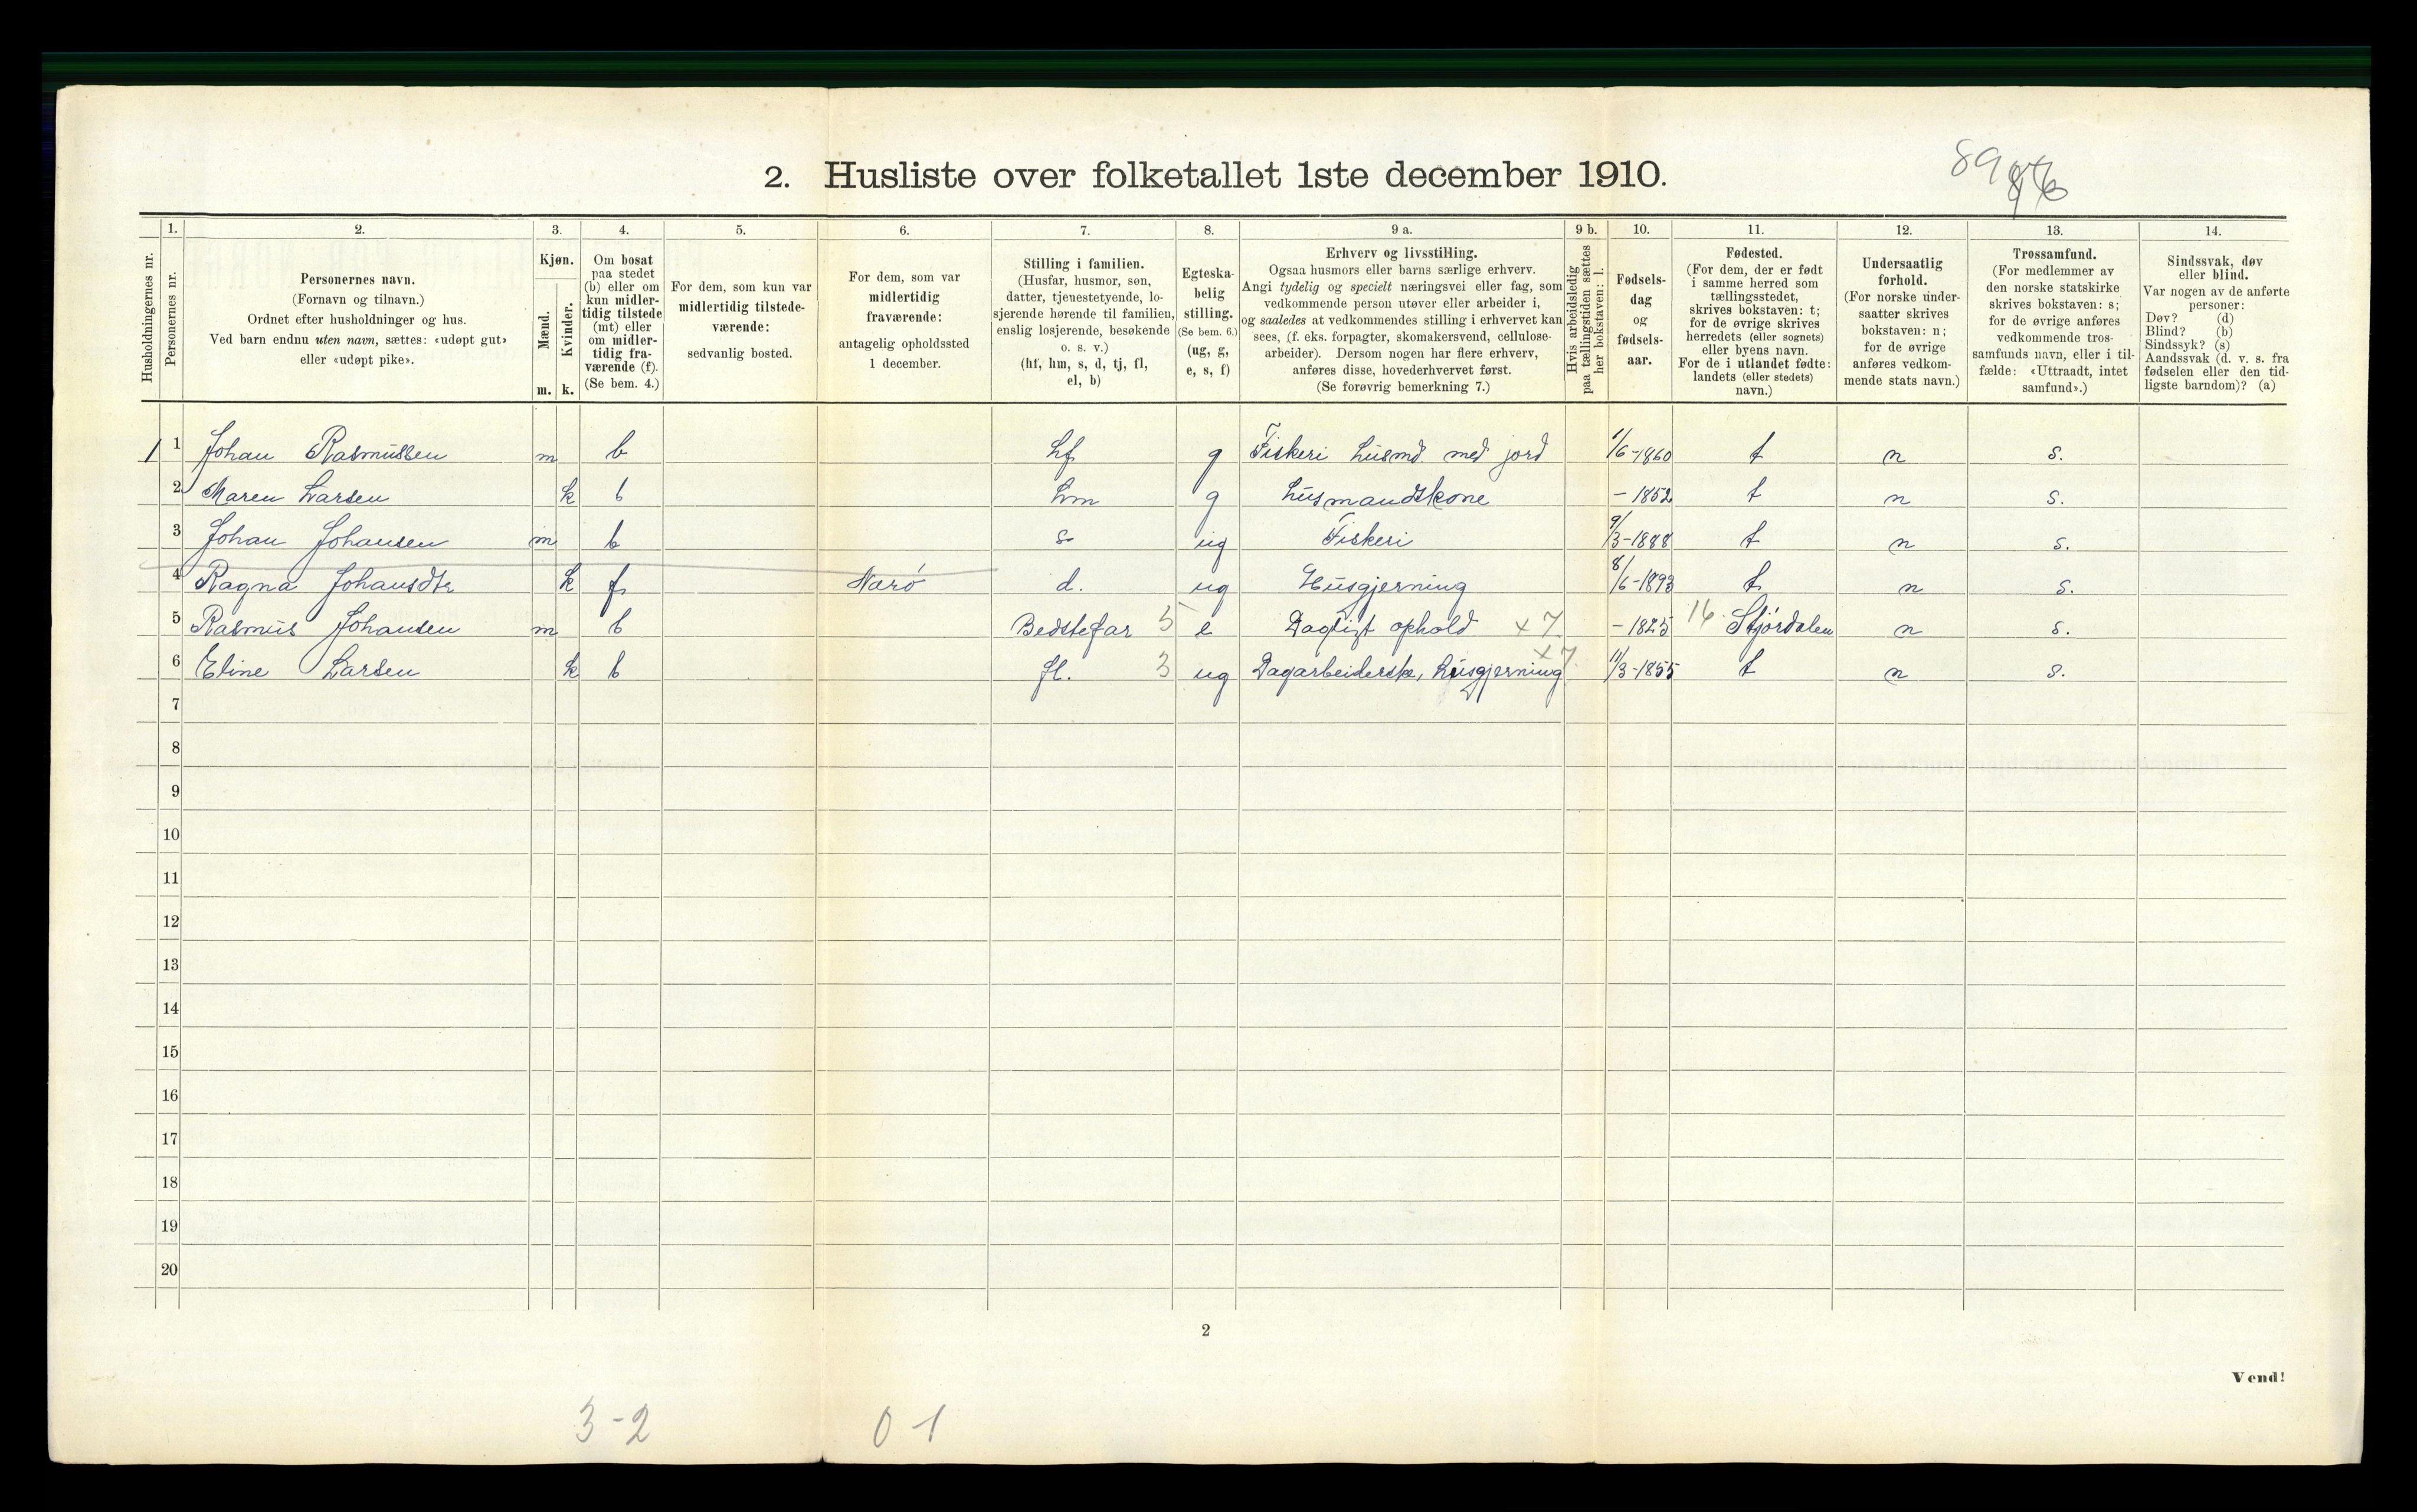 2. Husliste over folketallet 1ste december 1910.
89
1. 2. 3. 4. 5. 6. 7. 8. 9 a. 9 b. 10. 11. 12. 13. 14.
Husholdningernes nr.
Personernes nr.
Personernes navn.
(Fornavn og tilnavn.)
Ordnet efter husholdninger og hus.
Ved barn endnu uten navn, sættes: «udøpt gut»
eller «udøpt pike».
Kjøn.
Mænd.
Kvinder.
m. k.
Om bosat
paa stedet
(b) eller om
kun midler-
tidig tilstede
(mt) eller
om midler-
tidig fra-
værende (f).
(Se bem. 4.)
For dem, som kun var
midlertidig tilstede-
værende:
sedvanlig bosted.
For dem, som var
midlertidig
fraværende:
antagelig opholdssted
1 december.
Stilling i familien.
(Husfar, husmor, søn,
datter, tjenestetyende, lo-
sjerende hørende til familien,
enslig losjerende, besøkende
o. s. v.)
(hf, hm, s, d, tj, fl,
el, b)
Egteska-
belig
stilling.
(Se bem. 6.)
(ug, g,
e, s, f)
Erhverv og livsstilling.
Ogsaa husmors eller barns særlige erhverv.
Angi tydelig og specielt næringsvei eller fag, som
vedkommende person utøver eller arbeider i,
og saaledes at vedkommendes stilling i erhvervet kan
sees, (f. eks. forpagter, skomakersvend, cellulose-
arbeider). Dersom nogen har flere erhverv,
anføres disse, hovederhvervet først.
(Se forøvrig bemerkning 7.)
Hvis arbeidsledig
paa tællingstiden sættes
her bokstaven: l.
Fødsels-
dag
og
fødsels-
aar.
Fødested.
(For dem, der er født
i samme herred som
tællingsstedet,
skrives bokstaven: t;
for de øvrige skrives
herredets (eller sognets)
eller byens navn.
For de i utlandet fødte:
landets (eller stedets)
navn.)
Undersaatlig
forhold.
(For norske under-
saatter skrives
bokstaven: n;
for de øvrige
anføres vedkom-
mende stats navn.)
Trossamfund.
(For medlemmer av
den norske statskirke
skrives bokstaven: s;
for de øvrige anføres
vedkommende tros-
samfunds navn, eller i til-
fælde: «Uttraadt, intet
samfund».)
Sindssvak, døv
eller blind.
Var nogen av de anførte
personer:
Døv? (d)
Blind? (b)
Sindssyk? (s)
Aandssvak (d. v. s. fra
fødselen eller den tid-
ligste barndom)? (a)
1 1 Johan Rasmussen m b hf g Fiskeri husmd. med jord 1/6-1860 t n s.
2 Maren Larsen k b hm g husmandskone - 1852 t n s.
3 Johan Johansen m b s ug Fiskeri 9/3-1888 t n s.
4 Ragna Johansdtr k f Nærö d. ug Husgjerning 8/6-1893 t n s.
5 Rasmus Johansen m b Bedstefar 5 e Dagligt ophold x7 - 1825 16 Stjördalen n s.
6 Eline Larsen k b fl. 3 ug Dagarbeiderske, husgjerning x7 11/3-1855 t n s.
7
8
9
10
11
12
13
14
15
16
17
18
19
20
2
Vend!
3-2 0-1